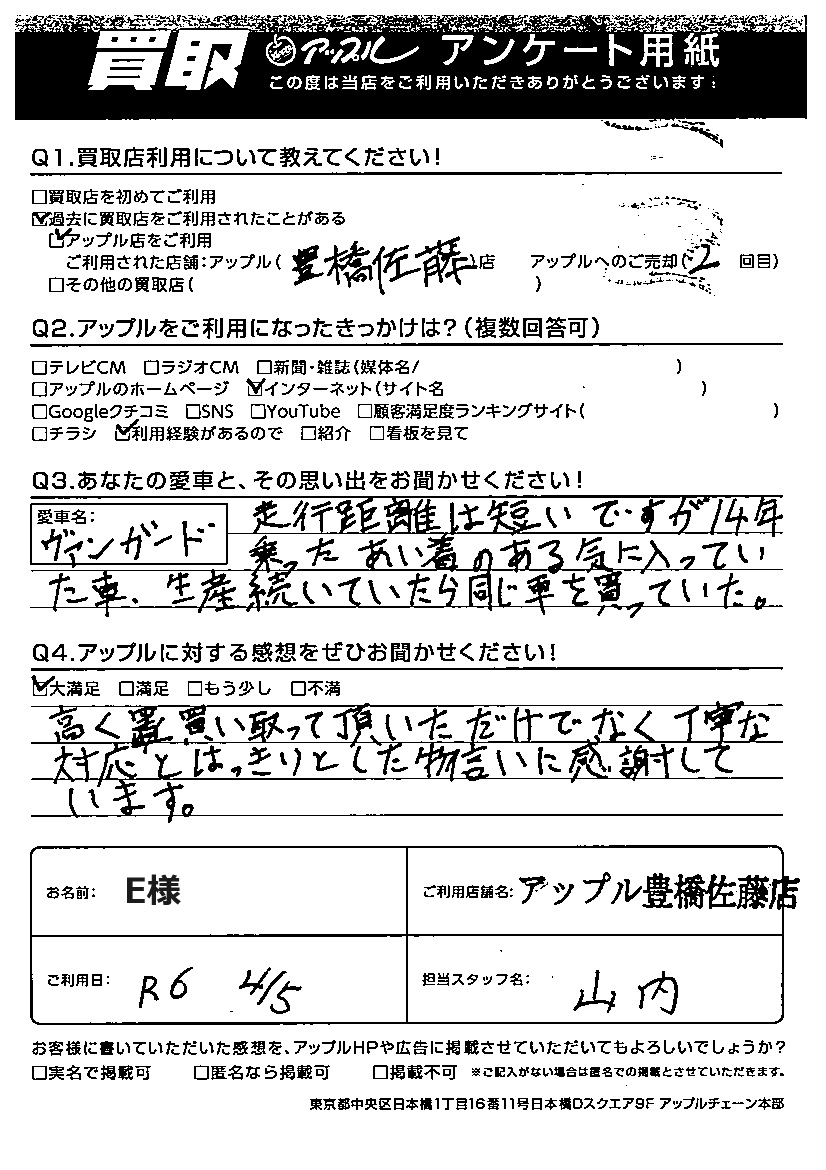 買取 アップル アンケート用紙
この度は当店をご利用いただきありがとうございます!
Q1.買取店利用について教えてください!
□買取店を初めてご利用
☑過去に買取店をご利用されたことがある
☑アップル店をご利用
ご利用された店舗:アップル(豊橋佐藤)店 アップルへのご売却(2 回目)
□その他の買取店( )
Q2.アップルをご利用になったきっかけは?(複数回答可)
□テレビCM □ラジオCM □新聞・雑誌(媒体名/ )
□アップルのホームページ ☑インターネット(サイト名 )
□Googleクチコミ □SNS □YouTube □顧客満足度ランキングサイト( )
□チラシ ☑利用経験があるので □紹介 □看板を見て
Q3.あなたの愛車と、その思い出をお聞かせください!
愛車名:
ヴァンガード
走行距離は短いですが14年
乗ったあい着のある気に入ってい
た車、生産続いていたら同じ車を買っていた。
Q4.アップルに対する感想をぜひお聞かせください!
☑大満足 □満足 □もう少し □不満
高く買い取って頂いただけでなく丁寧な
対応とはっきりとした物言いに感謝して
います。
お名前: E様 ご利用店舗名:アップル豊橋佐藤店
ご利用日: R6 4/5 担当スタッフ名: 山内
お客様に書いていただいた感想を、アップルHPや広告に掲載させていただいてもよろしいでしょうか?
□実名で掲載可 □匿名なら掲載可 □掲載不可 ※ご記入がない場合は匿名での掲載とさせていただきます。
東京都中央区日本橋1丁目16番11号日本橋Dスクエア9F アップルチェーン本部